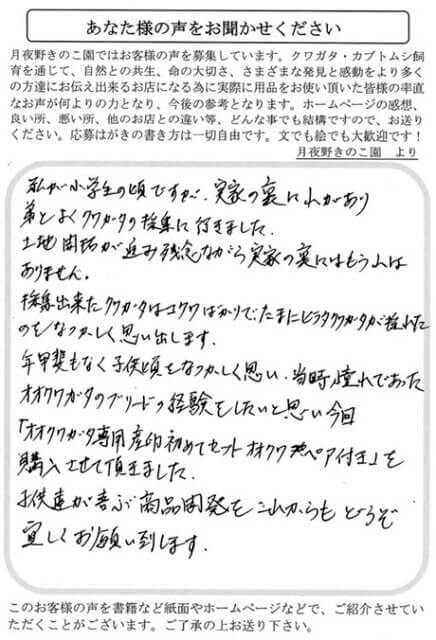 あなた様の声をお聞かせください
月夜野きのこ園ではお客様の声を募集しています。クワガタ・カブトムシ飼
育を通じて、自然との共生、命の大切さ、さまざまな発見と感動をより多く
の方達にお伝え出来るお店になる為に実際に用品をお使い頂いた皆様の率直
なお声が何よりの力となり、今後の参考となります。ホームページの感想、
良い所、悪い所、他のお店との違い等、どんな事でも結構ですので、お送り
ください。応募はがきの書き方は一切自由です。文でも絵でも大歓迎です！
月夜野きのこ園　より
私が小学生の頃ですが、実家の裏に山があり
弟とよくクワガタの採集に行きました。
土地開拓が進み残念ながら実家の裏にはもう山は
ありません。
採集出来たクワガタはコクワばかりで、たまにヒラタクワガタが採れた
のをなつかしく思い出します。
年甲斐もなく子供頃をなつかしく思い、当時憧れであった
オオクワガタのブリードの経験をしたいと思い今回
「オオクワガタ専用産卵初めてセットオオクワ ペア付き」を
購入させて頂きました。
子供達が喜ぶ商品開発をこれからもどうぞ
宜しくお願い致します。
このお客様の声を書籍など紙面やホームページなどで、ご紹介させてい
ただくことがございます。ご了承の上お送り下さい。